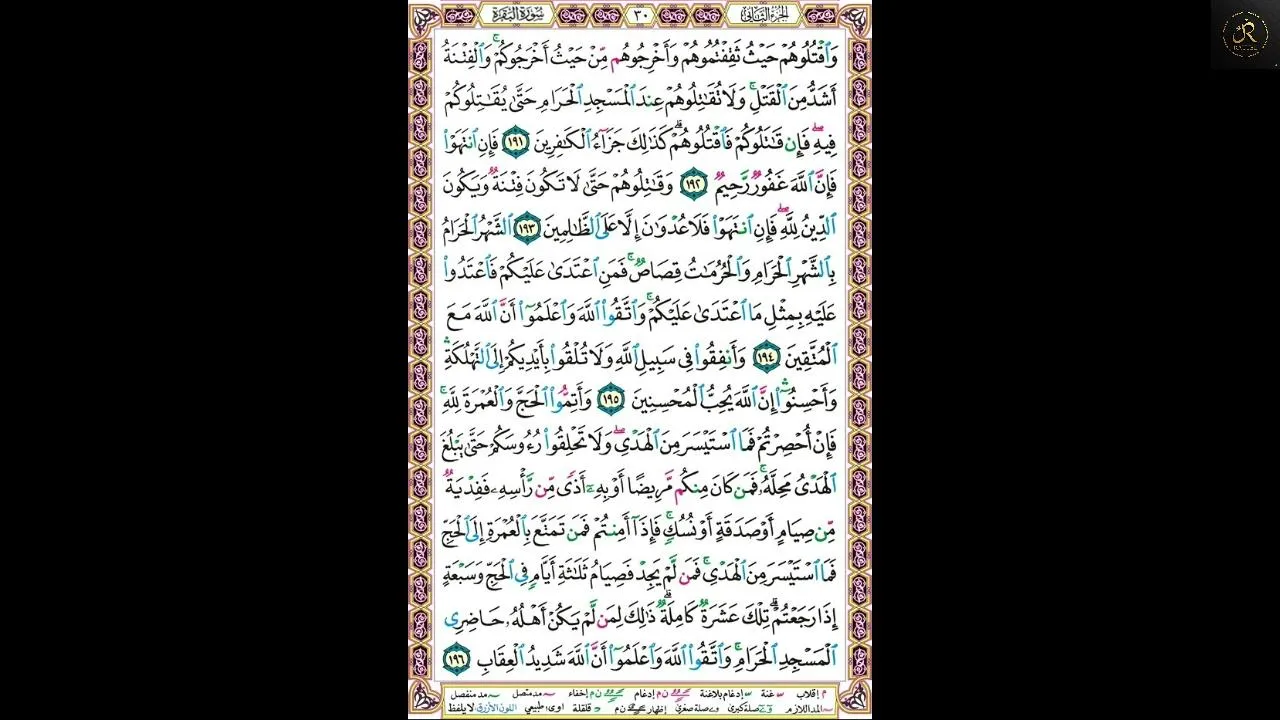 الجزء الثاني ٣٠ سورة البقرة
وَٱقْتُلُوهُمْ حَيْثُ ثَقِفْتُمُوهُمْ وَأَخْرِجُوهُم مِّنْ حَيْثُ أَخْرَجُوكُمْ ۚ وَٱلْفِتْنَةُ
أَشَدُّ مِنَ ٱلْقَتْلِ ۚ وَلَا تُقَـٰتِلُوهُمْ عِندَ ٱلْمَسْجِدِ ٱلْحَرَامِ حَتَّىٰ يُقَـٰتِلُوكُمْ
فِيهِ ۖ فَإِن قَـٰتَلُوكُمْ فَٱقْتُلُوهُمْ ۗ كَذَٰلِكَ جَزَآءُ ٱلْكَـٰفِرِينَ ١٩١ فَإِنِ ٱنتَهَوْا۟
فَإِنَّ ٱللَّهَ غَفُورٌ رَّحِيمٌ ١٩٢ وَقَـٰتِلُوهُمْ حَتَّىٰ لَا تَكُونَ فِتْنَةٌ وَيَكُونَ
ٱلدِّينُ لِلَّهِ ۖ فَإِنِ ٱنتَهَوْا۟ فَلَا عُدْوَٰنَ إِلَّا عَلَى ٱلظَّـٰلِمِينَ ١٩٣ ٱلشَّهْرُ ٱلْحَرَامُ
بِٱلشَّهْرِ ٱلْحَرَامِ وَٱلْحُرُمَـٰتُ قِصَاصٌ ۚ فَمَنِ ٱعْتَدَىٰ عَلَيْكُمْ فَٱعْتَدُوا۟
عَلَيْهِ بِمِثْلِ مَا ٱعْتَدَىٰ عَلَيْكُمْ ۚ وَٱتَّقُوا۟ ٱللَّهَ وَٱعْلَمُوٓا۟ أَنَّ ٱللَّهَ مَعَ
ٱلْمُتَّقِينَ ١٩٤ وَأَنفِقُوا۟ فِى سَبِيلِ ٱللَّهِ وَلَا تُلْقُوا۟ بِأَيْدِيكُمْ إِلَى ٱلتَّهْلُكَةِ ۛ
وَأَحْسِنُوٓا۟ ۛ إِنَّ ٱللَّهَ يُحِبُّ ٱلْمُحْسِنِينَ ١٩٥ وَأَتِمُّوا۟ ٱلْحَجَّ وَٱلْعُمْرَةَ لِلَّهِ ۚ
فَإِنْ أُحْصِرْتُمْ فَمَا ٱسْتَيْسَرَ مِنَ ٱلْهَدْىِ ۖ وَلَا تَحْلِقُوا۟ رُءُوسَكُمْ حَتَّىٰ يَبْلُغَ
ٱلْهَدْىُ مَحِلَّهُۥ ۚ فَمَن كَانَ مِنكُم مَّرِيضًا أَوْ بِهِۦٓ أَذًى مِّن رَّأْسِهِۦ فَفِدْيَةٌ
مِّن صِيَامٍ أَوْ صَدَقَةٍ أَوْ نُسُكٍ ۚ فَإِذَآ أَمِنتُمْ فَمَن تَمَتَّعَ بِٱلْعُمْرَةِ إِلَى ٱلْحَجِّ
فَمَا ٱسْتَيْسَرَ مِنَ ٱلْهَدْىِ ۚ فَمَن لَّمْ يَجِدْ فَصِيَامُ ثَلَـٰثَةِ أَيَّامٍ فِى ٱلْحَجِّ وَسَبْعَةٍ
إِذَا رَجَعْتُمْ ۗ تِلْكَ عَشَرَةٌ كَامِلَةٌ ۗ ذَٰلِكَ لِمَن لَّمْ يَكُنْ أَهْلُهُۥ حَاضِرِى
ٱلْمَسْجِدِ ٱلْحَرَامِ ۚ وَٱتَّقُوا۟ ٱللَّهَ وَٱعْلَمُوٓا۟ أَنَّ ٱللَّهَ شَدِيدُ ٱلْعِقَابِ ١٩٦
م إقلاب غنة إدغام بلاغنة ن م إدغام ن م إخفاء مد متصل مد منفصل
المد اللازم صلة كبرى صلة صغرى إظهار ن م قلقلة اوى طبيعي اللون الأزرق لا يلفظ